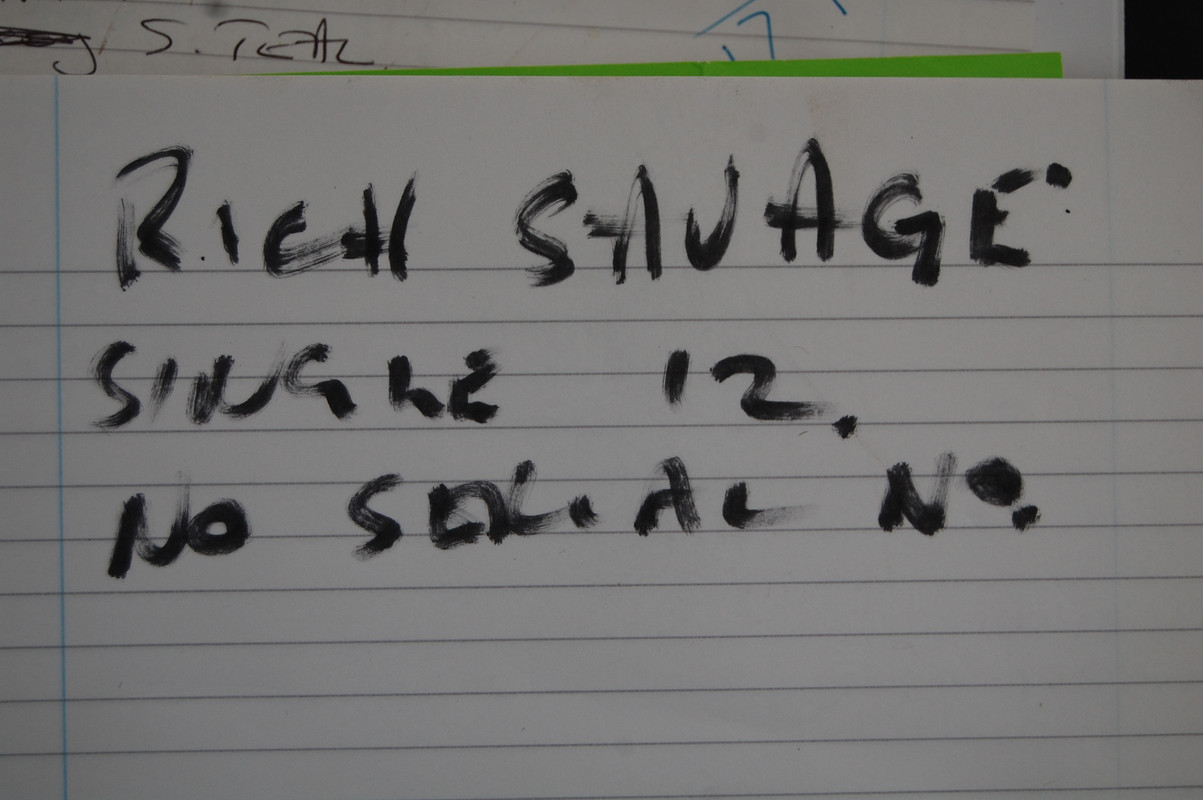 S. TEAL
17
RICH SAVAGE
SINGLE 12.
NO SERIAL NO.